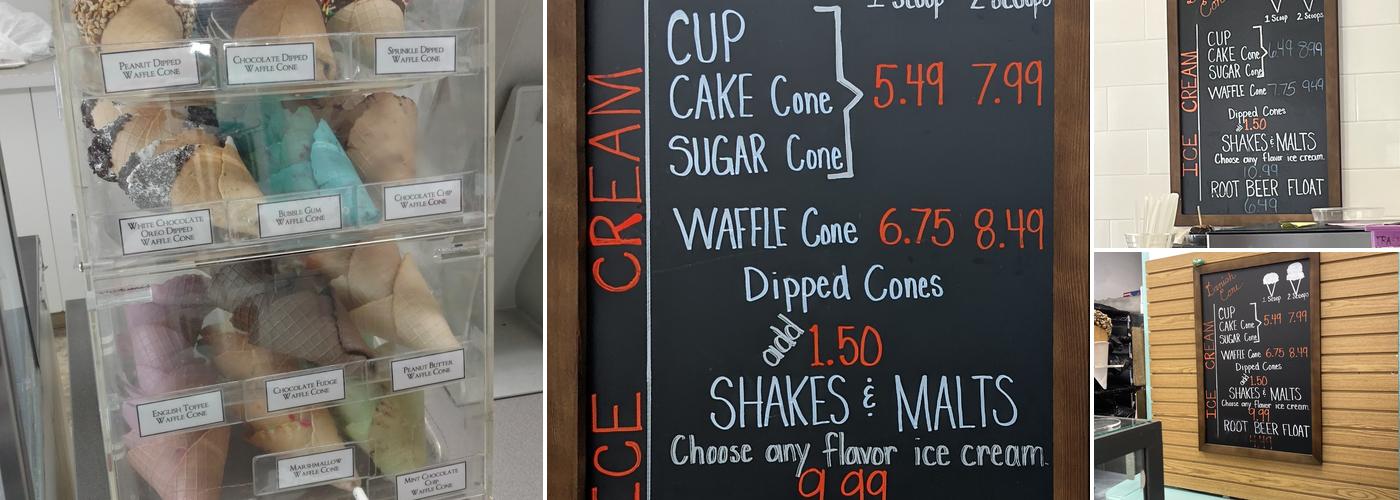 PEANUT DIPPED
WAFFLE CONE
CHOCOLATE DIPPED
WAFFLE CONE
SPRINKLE DIPPED
WAFFLE CONE
WHITE CHOCOLATE
OREO DIPPED
WAFFLE CONE
BUBBLE GUM
WAFFLE CONE
CHOCOLATE CHIP
WAFFLE CONE
ENGLISH TOFFEE
WAFFLE CONE
CHOCOLATE FUDGE
WAFFLE CONE
PEANUT BUTTER
WAFFLE CONE
MARSHMALLOW
WAFFLE CONE
MINT CHOCOLATE
CHIP
WAFFLE CONE
ICE CREAM
1 Scoop 2 Scoops
CUP
CAKE Cone 5.49 7.99
SUGAR Cone
WAFFLE Cone 6.75 8.49
Dipped Cones
add 1.50
SHAKES & MALTS
Choose any flavor ice cream.
9.99
ICE CREAM
1 Scoop 2 Scoops
CUP
CAKE Cone 6.49 8.99
SUGAR Cone
WAFFLE Cone 7.75 9.49
Dipped Cones
1.50
SHAKES & MALTS
Choose any flavor ice cream.
10.99
ROOT BEER FLOAT
6.49
Danish
Cone
ICE CREAM
1 Scoop 2 Scoops
CUP
CAKE Cone 5.49 7.99
SUGAR Cone
WAFFLE Cone 6.75 8.49
Dipped Cones
add 1.50
SHAKES & MALTS
Choose any flavor ice cream.
9.99
ROOT BEER FLOAT